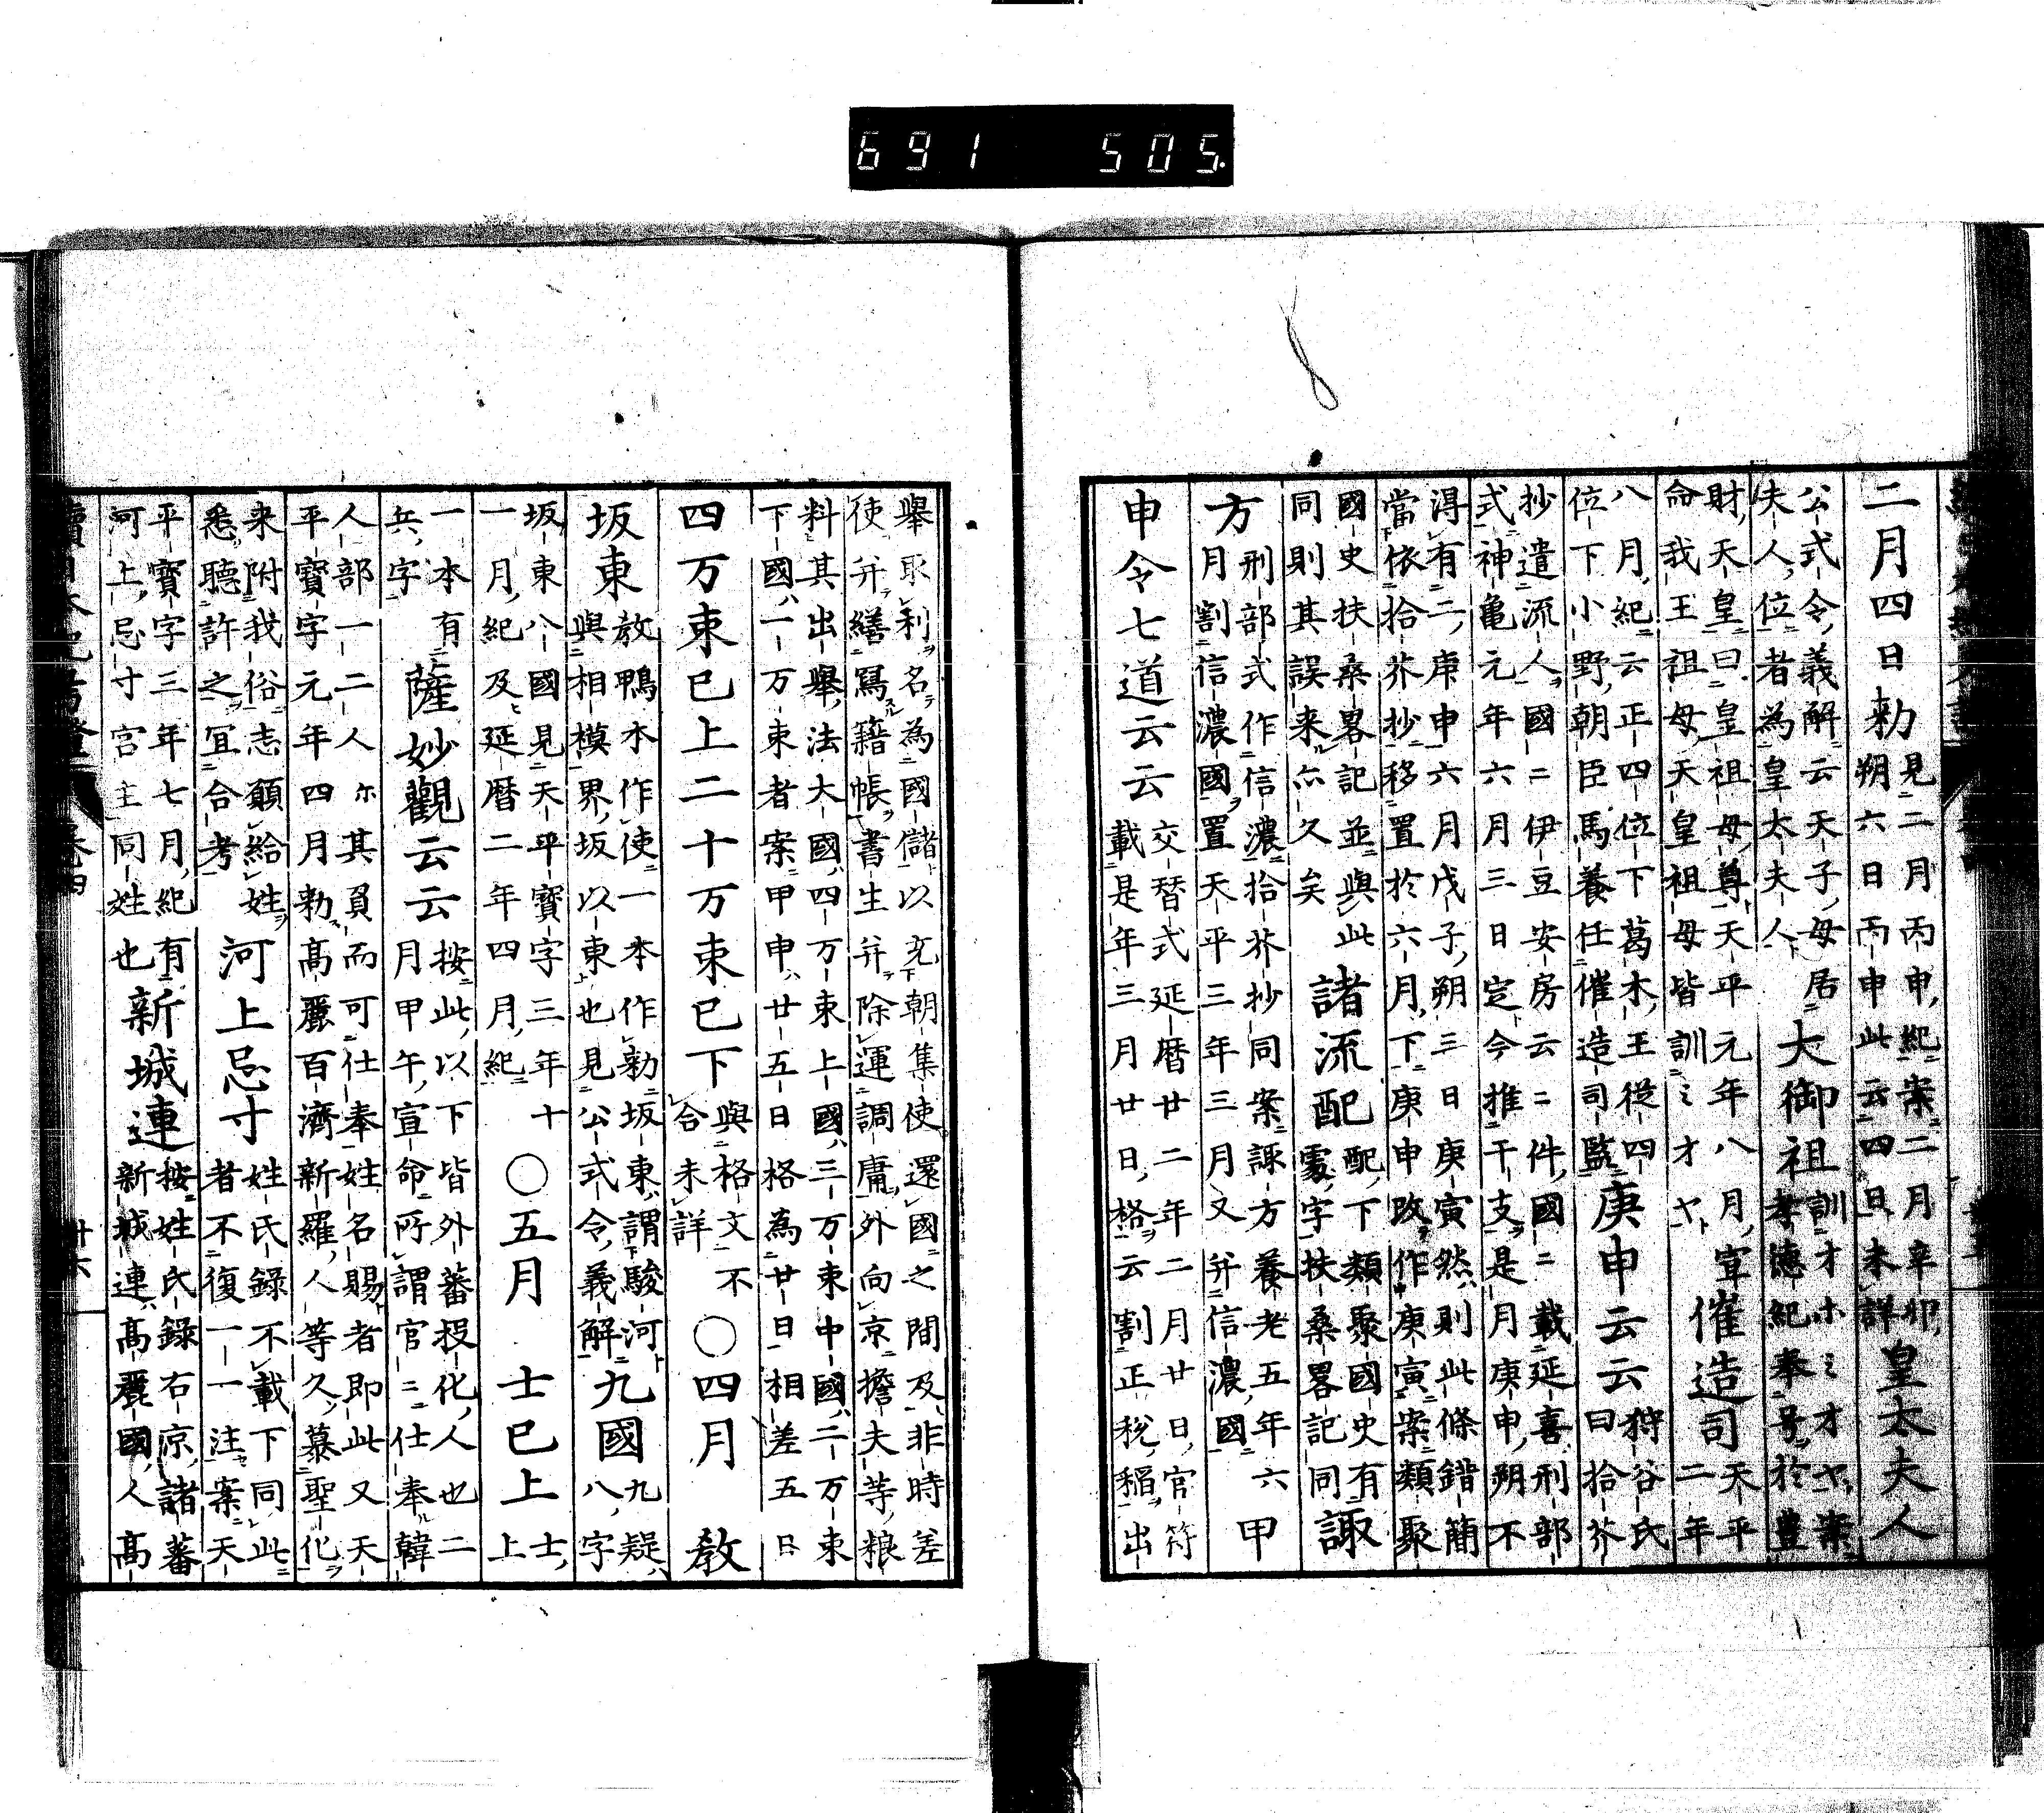 691 505.
二月四日勅 見二月丙申紀案二月辛卯
朔六日丙申此云四日未詳 皇太夫人
公式令義解云天子母居
夫人位者為皇太夫人 大御祖 訓才ホミオヤ案
孝徳紀奉号於豊
財天皇曰皇祖母尊天平元年八月宣
命我王祖母天皇祖母皆訓ミオヤ 催造司 天平
二年
八月紀云正四位下葛木王從四
位下小野朝臣馬養任催造司監 庚申云云 狩谷氏
曰拾芥
抄遣流人國二伊豆安房云二件國二載延喜刑部
式神亀元年六月三日定今推干支是月庚申朔不
得有二庚申六月戊子朔三日庚寅然則此條錯簡
當依拾芥抄移置於六月下庚申改作庚寅案類聚
國史扶桑畧記並與此
同則其誤来尓久矣 諸流配 配下類聚國史有
處字扶桑畧記同 諏
方 刑部式作信濃拾芥抄同案諏方養老五年六
月割信濃國置天平三年三月又并信濃國 甲
申令七道云云 交替式延暦廿二年二月廿日官符
載是年三月廿日格云割正税稲出
舉取利名為國儲以充朝集使還國之間及非時差
使并繕寫籍帳書生并除運調庸外向京擔夫等粮
料其出舉法大國四万束上國三万束中國二万束
下國一万束者案甲申廿五日格為廿日相差五日
四万束巳上二十万束巳下 與格文不
合未詳 〇四月 教
坂東 教鴨本作使一本作勅坂東謂駿河
與相模界坂以東也見公式令義解 九國 九疑八字
坂東八國見天平寶字三年十
一月紀及延暦二年四月紀 〇五月 士巳上 士上
一本有
兵字 薩妙觀云云 按此以下皆外蕃投化人也二
月甲午宣命所謂官二仕奉韓
人部一二人尓其負而可仕奉姓名賜者即此又天
平寶字元年四月勅高麗百濟新羅人等久慕聖化
来附我俗志願給姓
悉聽許之宜合考 河上忌寸 姓氏錄不載下同此
者不復一一注案天
平寶字三年七月紀有
河上忌寸宮主同姓也 新城連 按姓氏錄右京諸蕃
新城連高麗國人高